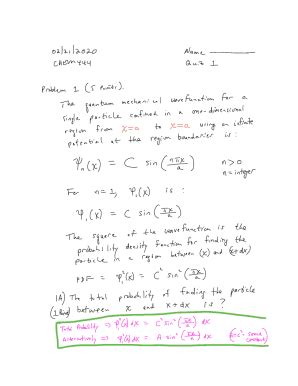 02/21/2020 Name
CHEM444 Quiz 1
Problem 1 (5 Points).
The quantum mechanical wavefunction for a
single particle confined in a one-dimensional
region from x=0 to x=a using an infinite
potential at the region boundaries is:
ψₙ(x) = C sin(nπx/a) n>0
n=integer
For n=1, ψ₁(x) is:
ψ₁(x) = C sin(πx/a)
The square of the wavefunction is the
probability density function for finding the
particle in a region between (x) and (x+dx)
PDF = ψ₁²(x) = C² sin²(πx/a)
1A) The total probability of finding the particle
between x and x+dx is?
Total Probability ⇒ ψ₁²(x)dx = C² sin²(πx/a) dx
Alternatively ⇒ ψ₁²(x)dx = A sin²(πx/a) dx (A=C² some
constant)